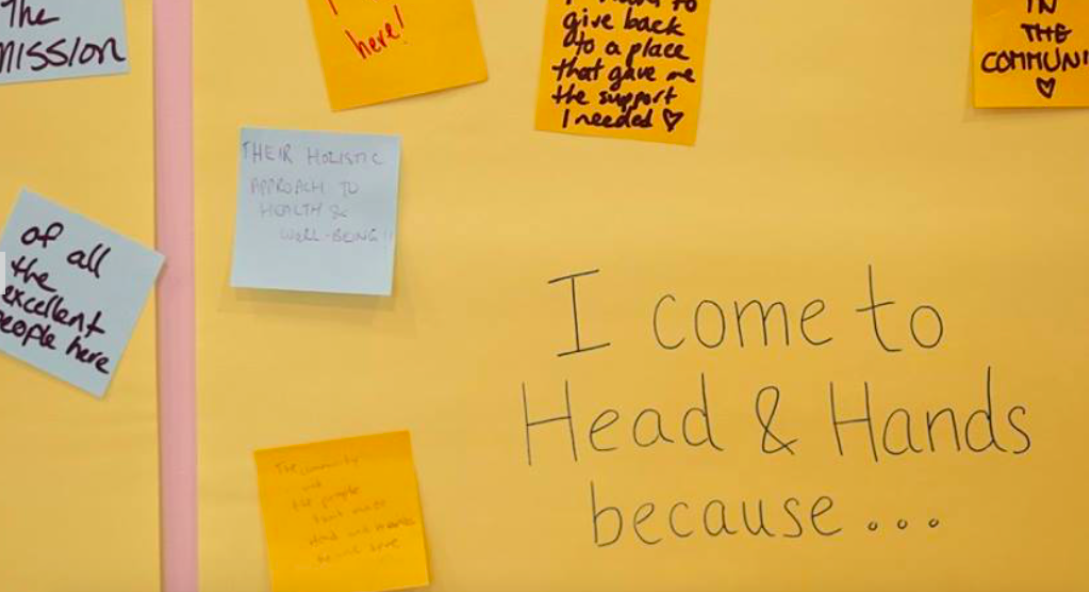 The
MISSION
here!
give back
to a place
that gave me
the support
I needed ♡
IN
THE
COMMUNI
♡
THEIR HOLISTIC
APPROACH TO
HEALTH &
WELL-BEING!!
of all
the
excellent
people here
I come to
Head & Hands
because...
The community
the people
that make